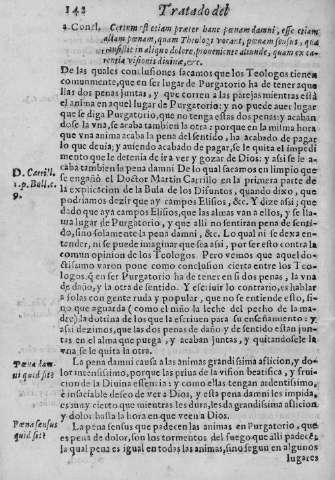 142 Tratado del
2. Concl. Certum est etiam præter hanc pœnam damni, esse etiam
aliam pœnam, quam Theologi vocant, pœnam sensus, quæ
consistit in aliquo dolore, proueniente aliunde, quam ex ca-
rentia visionis diuinæ, &c.
De las quales conclusiones sacamos que los Teologos tienen
comunmente, que en ese lugar de Purgatorio ha de tener aque
llas dos penas juntas, y que corren a las parejas mientras està
el anima en aquel lugar de Purgatorio; y no puede auer lugar
que se diga Purgatorio, que no tenga essas dos penas: y acaban
dose la vna, se acaba tambien la otra: porque en la misma hora
que vna anima acaba la pena del sentido, ha acabado de pagar
lo que deuia; y auiendo acabado de pagar, se le quita el impedi
mento que le detenia de ir a ver y gozar de Dios; y asi se le a-
caba tambien la pena damni. De lo qual sacamos en limpio que
D. Carrill.
1. p. Bull. c.
9.
se engañò el Doctor Martin Carrillo en la primera parte de
la explicacion de la Bula de los Difuntos, quando dixo, que
podriamos dezir que ay campos Elisios, &c. Y dize assi; que
dado que aya campos Elisios, que las almas van a ellos, y se lla-
ma lugar de Purgatorio, y que alli no sentiran pena de senti-
do, sino solamente la pena damni, &c. Lo qual ni se dexa en-
tender, ni se puede imaginar que sea assi, por ser esto contra la
comun opinion de los Teologos. Pero vemos que aquel do-
ctissimo varon pone como conclusion cierta entre los Teo-
logos, q̃ en ser Purgatorio ha de tener en si dos penas, la vna
de daño, y la otra de sentido. Y escriuir lo contrario, es hablar
a solas con gente ruda y popular, que no se entiende esto, si-
no que aguarda (como el niño la leche del pecho de la ma-
dre) la dotrina de los que la escriuen para su enseñamiento: y
assi dezimos, que las dos penas de daño y de sentido estan jun-
tas en el alma que purga, y acaban juntas, y quitandosele la
vna se le quita la otra.
Pœna dam-
ni quid sit
La pena damni causa a las animas grandissima aflicion, y do-
lor intensissimo, porque las priua de la vision beatifica, y frui-
cion de la Diuina essencia: y como ellas tengan ardentissimo,
è insaciable deseo de ver a Dios, y esta pena damni les impida,
es muy cierto que mientras les dura, les da grandissima aflicion
y dolor hasta la hora en que veen a Dios.
Pœna sensus
quid sit
La pena sensus que padecen las animas en Purgatorio, que
es pena de dolor, son los tormentos del fuego que alli padecẽ;
la qual pena es igual en todas las animas, sino segun en algunos
lugares